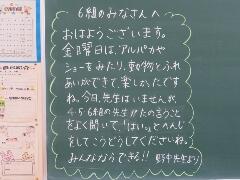 6組のみなさんへ
おはようございます。
金曜日は、アルパカや
ショーをみたり、動物とふれ
あいができて、楽しかったです
ね。今日、先生はいませんが、
4・5・6組の先生がたのきうこと
をよく聞いて、「はい。」とへんじ
をしてこうどうしてくださいね。
みんなならできる!! 野中先生より